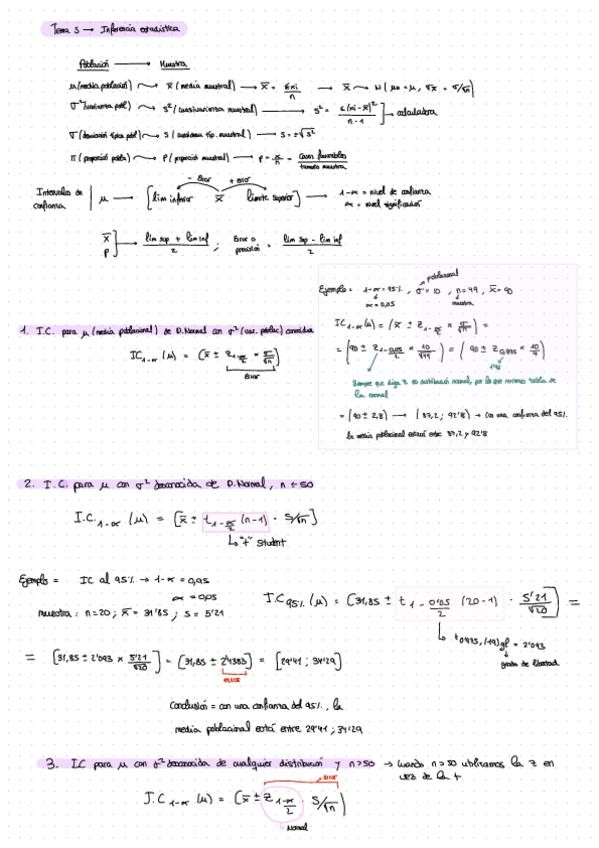 Tema 5 → Inferencia estadística
Población → Muestra
μ (media población) → x̄ (media muestral) → x̄ = Σxi/n → x̄ → N(μ0 = μ, σx̄ = σ/√n)
σ² (varianza pobl) → s² (cuasivarianza muestral) → s² = Σ(xi - x̄)²/n-1 → calculadora
σ (desviación típica pobl) → s (cuasidesv. típ. muestral) → s = ±√s²
π (proporción pobla) → p (proporción muestral) → p = x/n = casos favorables/tamaño muestra
Intervalos de confianza | μ → [lim inferior x̄ límite superior] → 1-α = nivel de confianza
- error + error
α = nivel significación
x̄ p] → lim sup + lim inf/2 ; Error o precisión = lim sup - lim inf/2
Ejemplo = 1-α = 95% , σ = 10 , n = 49 , x̄ = 90
poblacional
α = 0,05 muestra
1. I.C. para μ (media poblacional) de D.Normal con σ² (var. poblac) conocida
IC 1-α (μ) = (x̄ ± z 1-α/2 × σ/√n)
Error
IC 1-α (μ) = (x̄ ± z 1-α/2 × σ/√n) =
= (90 ± z 1-0,05/2 × 10/√49) = (90 ± z 0,975 × 10/7)
1'96
Siempre que diga z es distribución normal, por lo que miramos tabla de
la normal
= (90 ± 2,8) → (87,2 ; 92'8) → Con una confianza del 95%
la media poblacional estará entre 87,2 y 92'8
2. I.C. para μ con σ² desconocida de D.Normal, n < 50
I.C. 1-α (μ) = [x̄ ± t 1-α/2 (n-1) · S/√n]
↳ "t" Student
Ejemplo = IC al 95% → 1-α = 0,95
α = 0,05
muestra : n = 20 ; x̄ = 31'85 ; s = 5'21
I.C 95% (μ) = (31,85 ± t 1-0'05/2 (20-1) · 5'21/√20) =
↳ t 0'975, (19) gl = 2'093
grados de libertad
= [31,85 ± 2'093 × 5'21/√20] = (31,85 ± 2'4383) = [29'41 ; 34'29]
error
Conclusión = con una confianza del 95%, la
media poblacional está entre 29'41 ; 34'29
3. IC para μ con σ² desconocida de cualquier distribución y n > 50 → Cuando n > 50 utilizamos la z en
vez de la t
Error
I.C 1-α (μ) = (x̄ ± z 1-α/2 · S/√n)
Normal